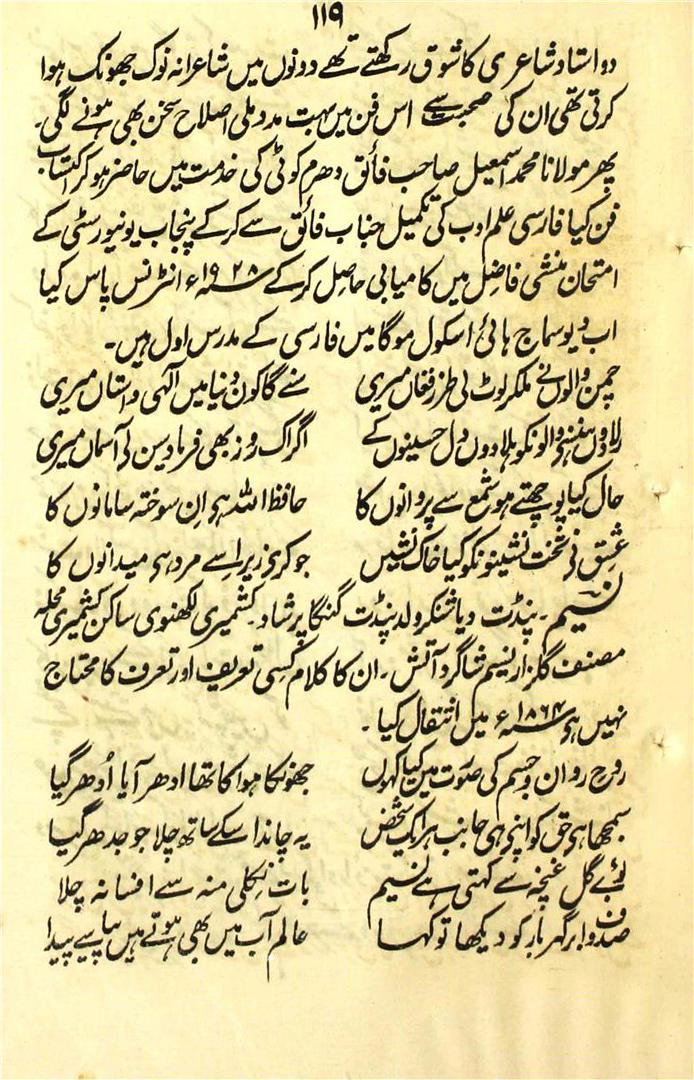 ۱۱۹
دو استاد شاعری کا شوق رکھتے تھے دونوں میں شاعرانہ نوک جھونک ہوا
کرتی تھی ان کی صحبت سے اس فن میں بہت مدد ملی اصلاح سخن بھی ہونے لگی۔
پھر مولانا محمد اسمعیل صاحب فائق دھرم کوٹی کی خدمت میں حاضر ہو کر اکتساب
فن کیا فارسی علم ادب کی تکمیل جناب فائق سے کرکے پنجاب یونیورسٹی کے
امتحان منشی فاضل میں کامیابی حاصل کرکے ۱۹۲۸ء انٹرنس پاس کیا
اب دیو سماج ہائی اسکول موگا میں فارسی کے مدرس اول ہیں۔
چمن والوں نے ملکر لوٹ لی طرز فغاں میری سنے گا کون دنیا میں الہی داستاں میری
رلا دوں ہنسنے والونکو ہلا دوں دل حسینوں کے اگر اک روز بھی فریاد سن لے آسماں میری
حال کیا پوچھتے ہو شمع سے پروانوں کا حافظ اللہ ہے ان سوختہ سامانوں کا
عشق نے تخت نشینونکو کیا خاک نشیں جو کرے زیر اسے مرد ہے میدانوں کا
نسیم۔ پنڈت دیا شنکر ولد پنڈت گنگا پرشاد۔ کشمیری لکھنوی ساکن کشمیری محلہ
مصنف گلزار نسیم شاگرد آتش۔ ان کا کلام کسی تعریف اور تعرف کا محتاج
نہیں ہے ۱۸۶۴ء میں انتقال کیا۔
روح روان و جسم کی صورت میں کیا کہوں جھونکا ہوا کا تھا ادھر آیا اُدھر گیا
سمجھا ہے حق کو اپنے ہی جانب ہر ایک شخص یہ چاند اسکے ساتھ چلا جو جدھر گیا
بوئے گل غنچہ سے کہتی ہے نسیم بات نکلی منہ سے افسانہ چلا
صدف و ابر گہر بار کو دیکھا تو کہا عالم آب میں بھی ہوتے ہیں پیدا